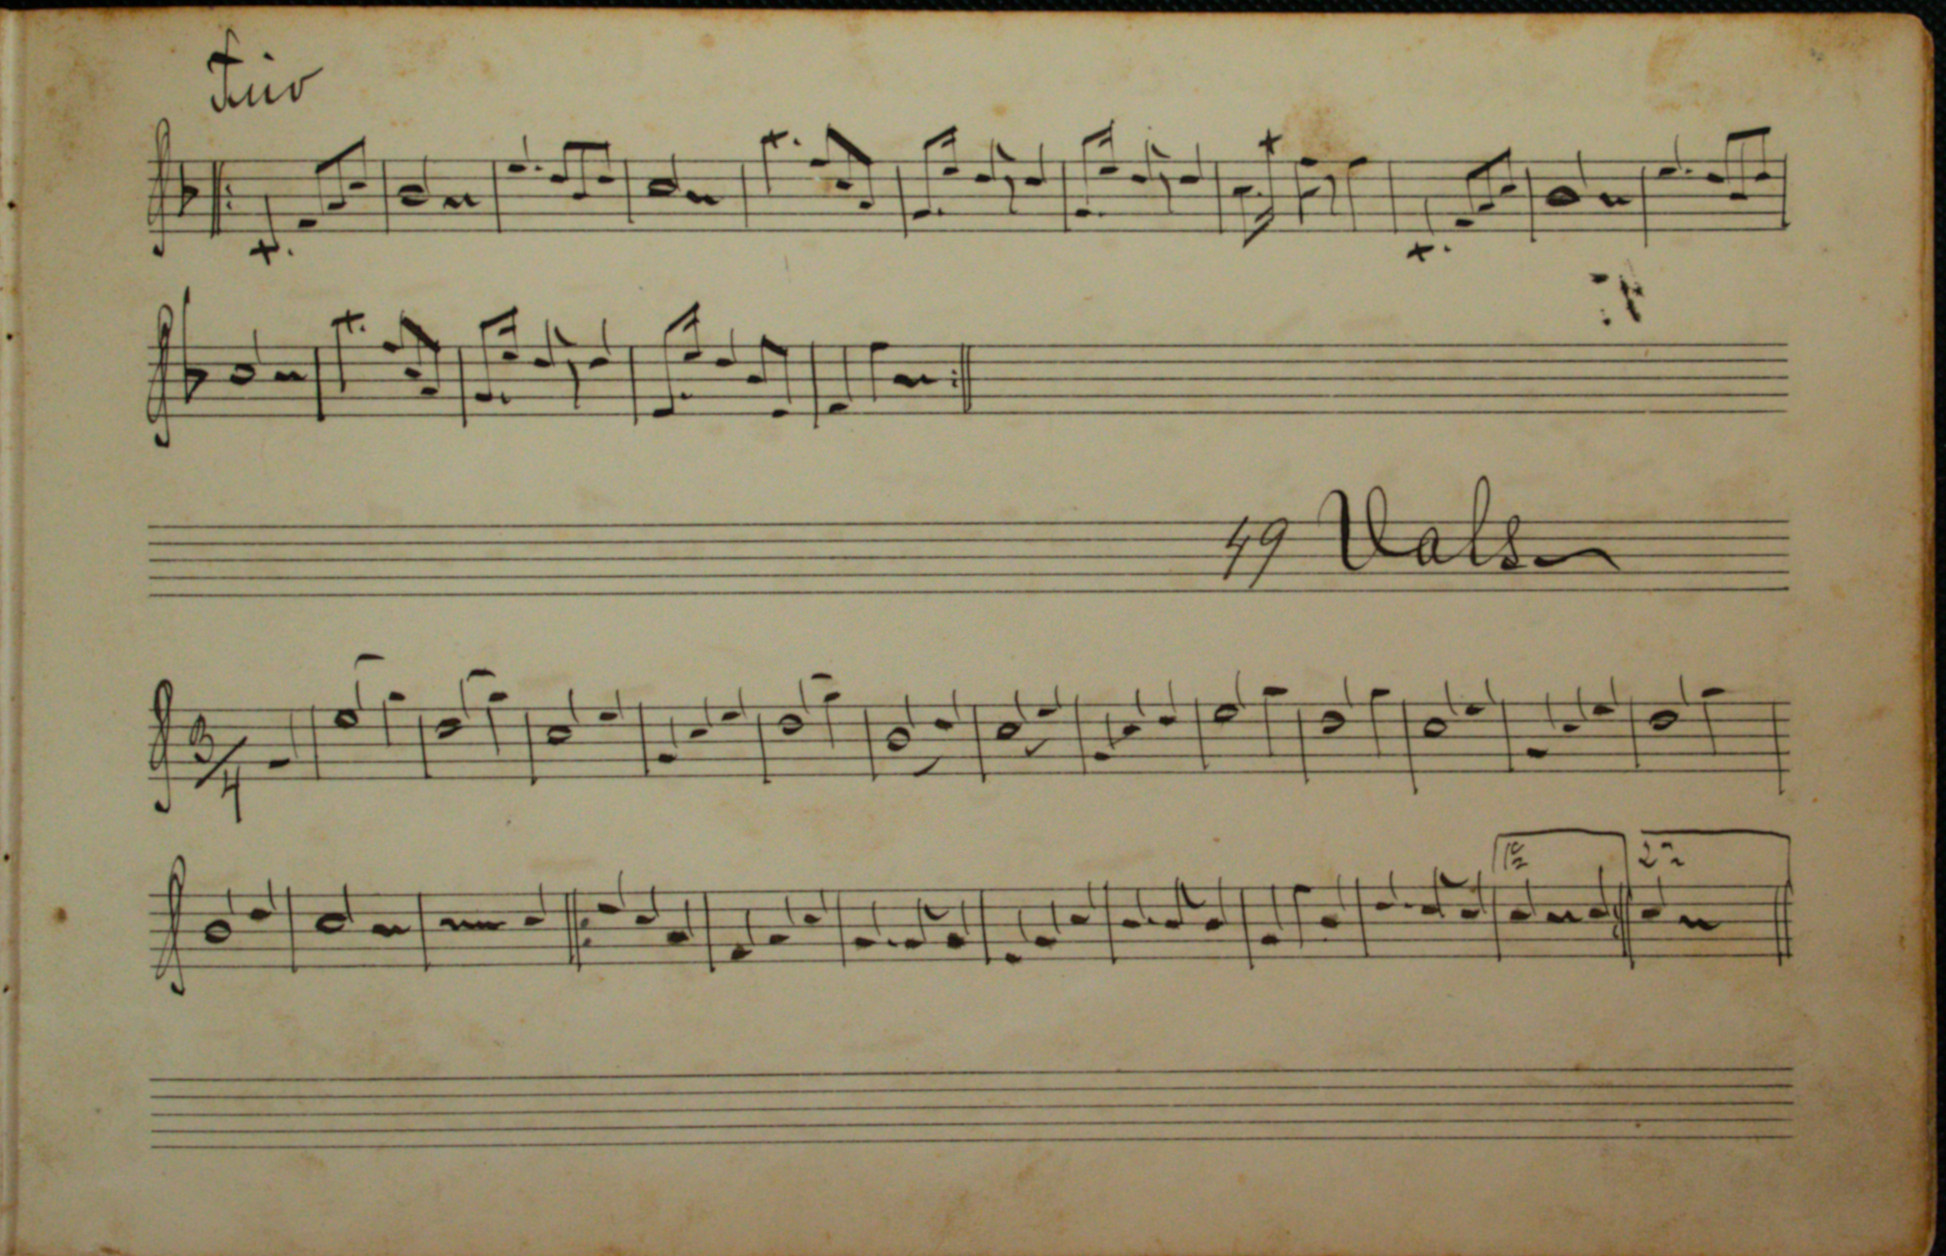 Trio
49 Vals
3/4
1ª 2ª